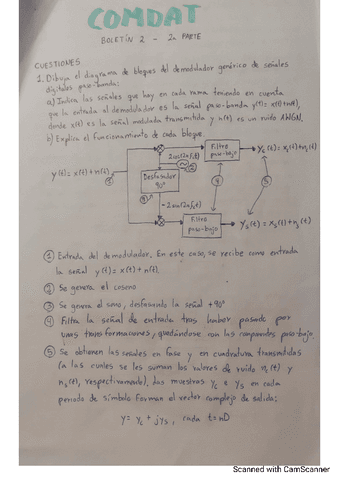 COMDAT
BOLETÍN 2 - 2a PARTE
CUESTIONES
1. Dibuja el diagrama de bloques del demodulador genérico de señales
digitales paso-banda:
a) Indica las señales que hay en cada rama teniendo en cuenta
que la entrada al demodulador es la señal paso-banda y(t) = x(t)+n(t),
donde x(t) es la señal modulada transmitida y n(t) es un ruido AWGN.
b) Explica el funcionamiento de cada bloque.
y(t) = x(t) + n(t)
①
2cos(2πfct)
②
Desfasador
90°
③
-2sen(2πfct)
Filtro
paso-bajo
④
yc(t) = xc(t)+nc(t)
⑤
Filtro
paso-bajo
ys(t) = xs(t)+ns(t)
① Entrada del demodulador. En este caso, se recibe como entrada
la señal y(t) = x(t) + n(t).
② Se genera el coseno
③ Se genera el seno, desfasando la señal +90°
④ Filtra la señal de entrada tras haber pasado por
unas transformaciones, quedándose con las componentes paso-bajo.
⑤ Se obtienen las señales en fase y en cuadratura transmitidas
(a las cuales se les suman los valores de ruido nc(t) y
ns(t), respectivamente). Las muestras yc e ys en cada
periodo de símbolo forman el vector complejo de salida:
y = yc + jys, cada t=nD
Scanned with CamScanner